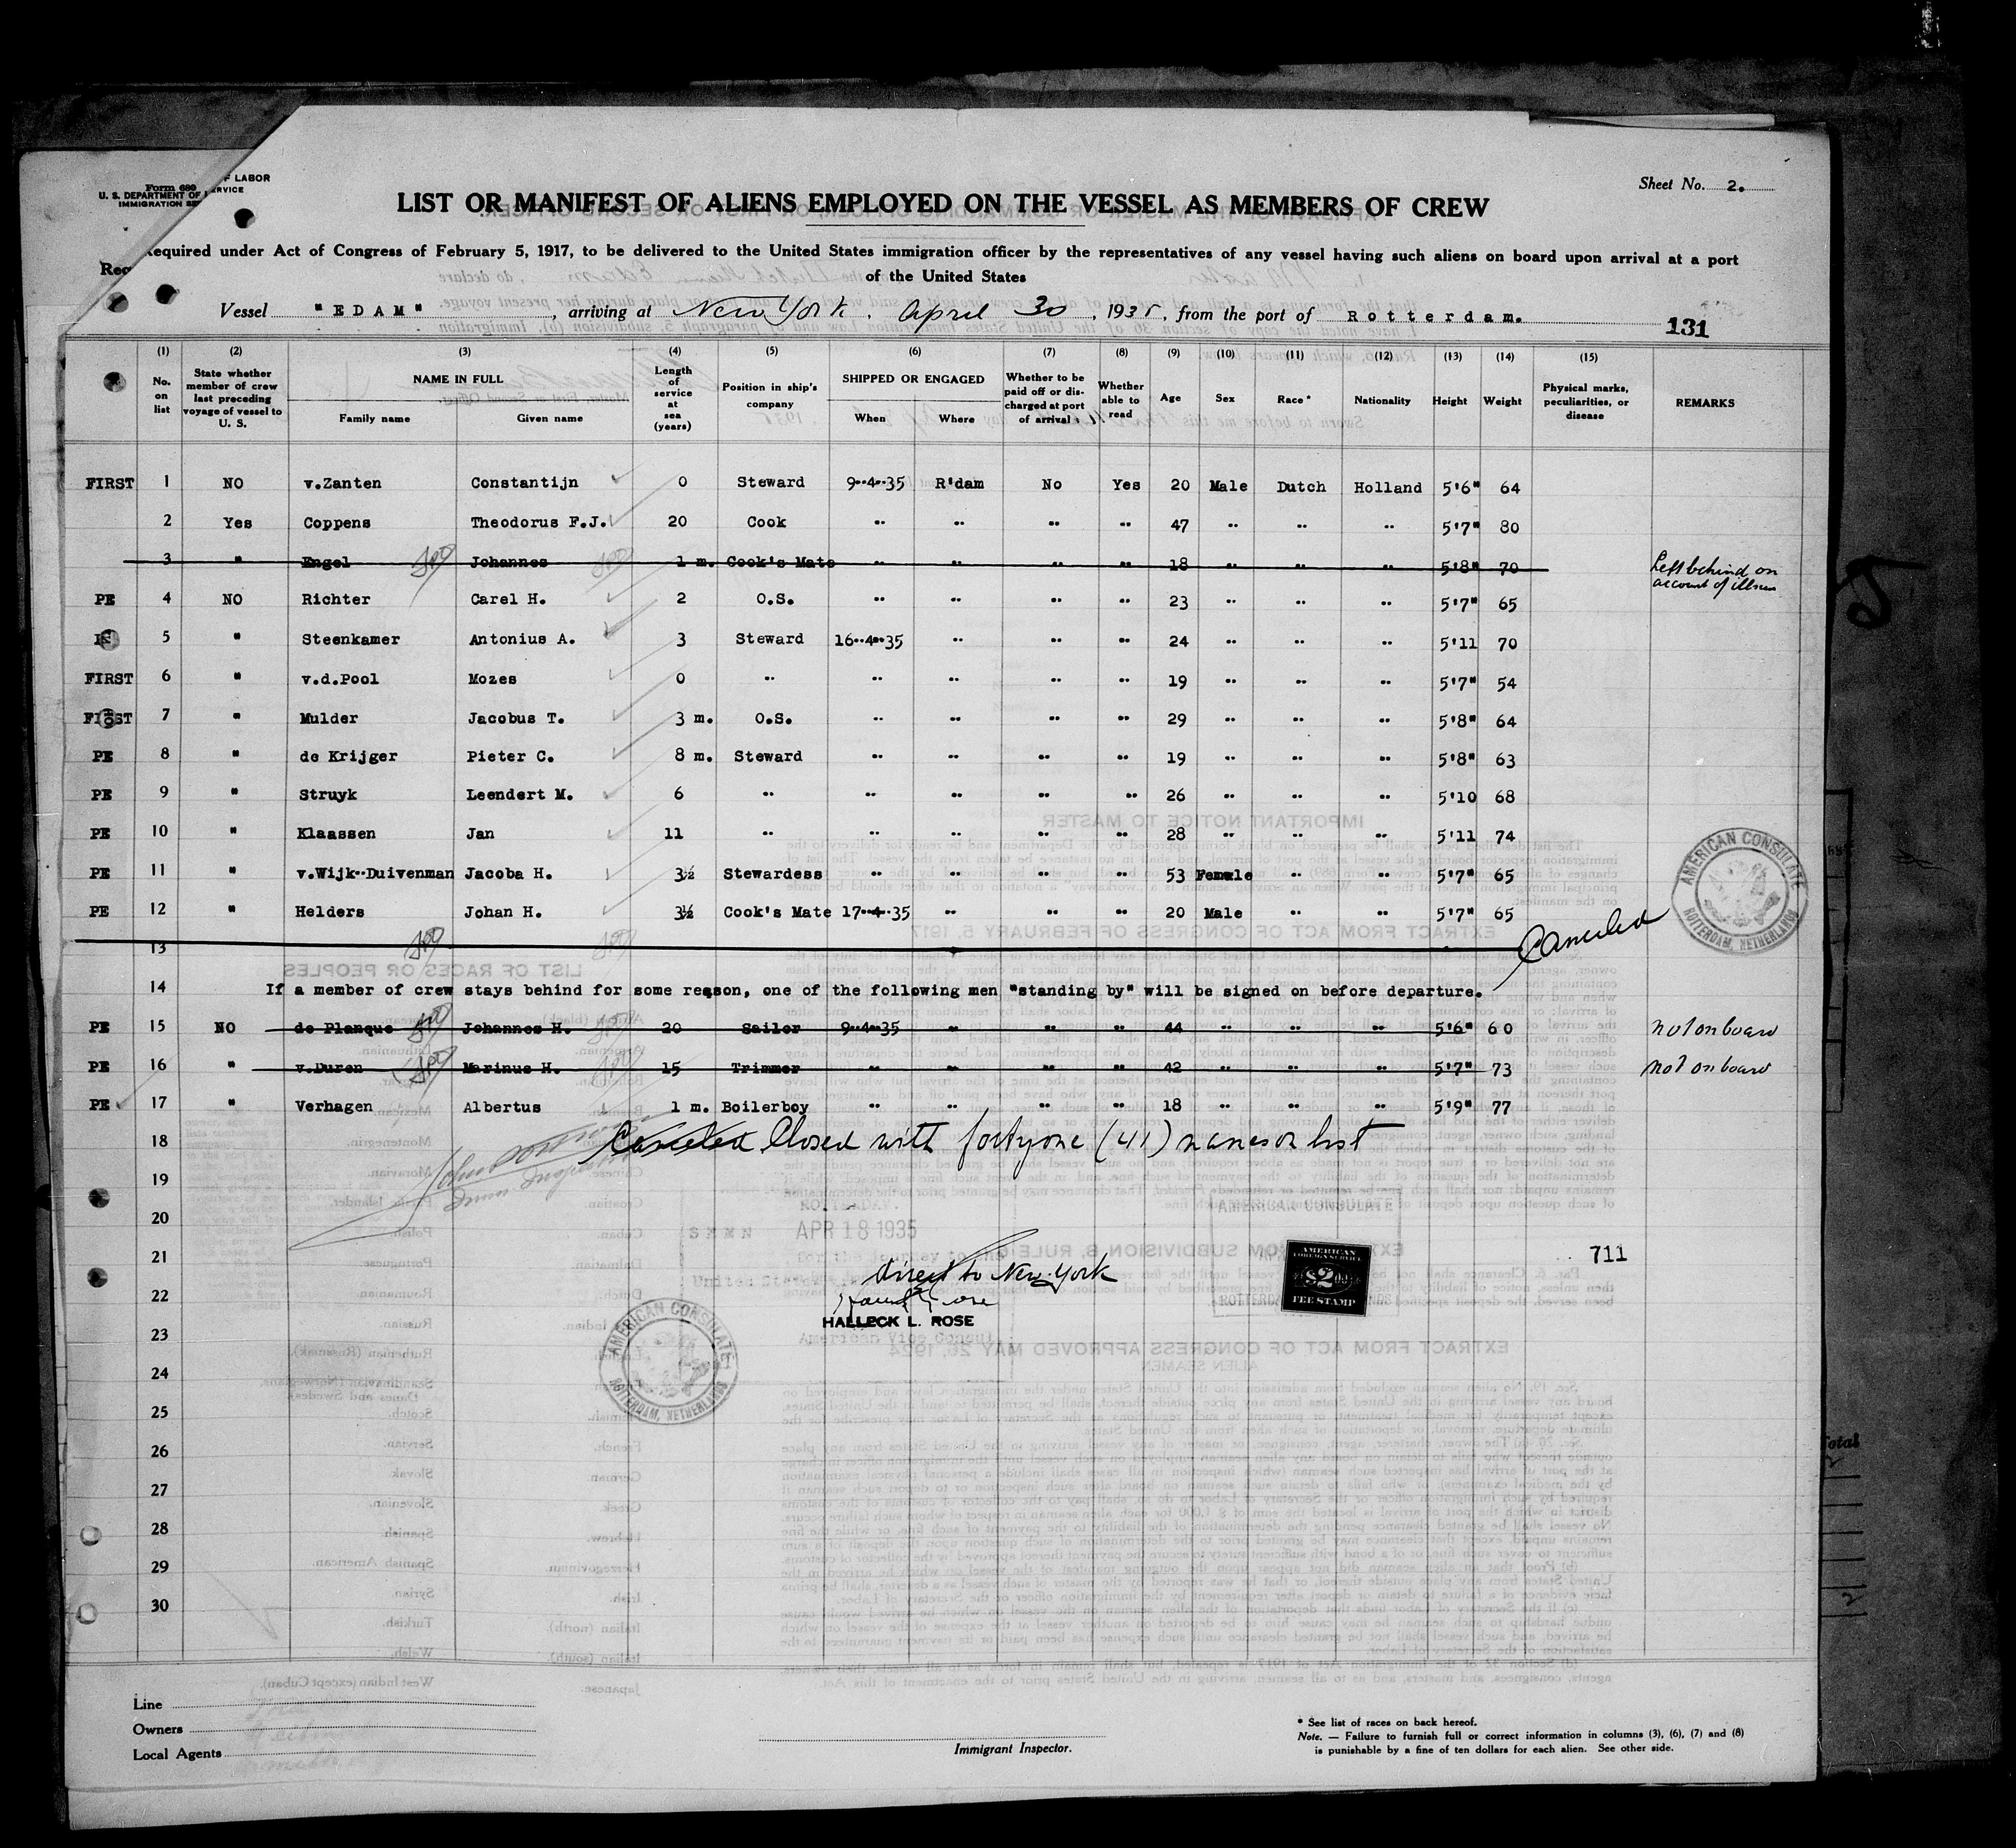 Form 680
U. S. DEPARTMENT OF LABOR
IMMIGRATION SERVICE
Sheet No. 2.
LIST OR MANIFEST OF ALIENS EMPLOYED ON THE VESSEL AS MEMBERS OF CREW
Required under Act of Congress of February 5, 1917, to be delivered to the United States immigration officer by the representatives of any vessel having such aliens on board upon arrival at a port
of the United States
Vessel "EDAM", arriving at New York, April 30, 1935, from the port of Rotterdam.
131
(1) (2) (3) (4) (5) (6) (7) (8) (9) (10) (11) (12) (13) (14) (15)
No. on list
State whether member of crew last preceding voyage of vessel to U. S.
NAME IN FULL
Family name
Given name
Length of service at sea (years)
Position in ship's company
SHIPPED OR ENGAGED
When
Where
Whether to be paid off or discharged at port of arrival
Whether able to read
Age
Sex
Race *
Nationality
Height
Weight
Physical marks, peculiarities, or disease
REMARKS
FIRST 1 NO v.Zanten Constantijn 0 Steward 9--4--35 R'dam No Yes 20 Male Dutch Holland 5'6" 64
2 Yes Coppens Theodorus F.J. 20 Cook -- -- -- -- 47 -- -- -- 5'7" 80
3 " Engel Johannes 1 m. Cook's Mate -- -- -- -- 18 -- -- -- 5'8" 70 Left behind on
account of illness
PE 4 NO Richter Carel H. 2 O.S. -- -- -- -- 23 -- -- -- 5'7" 65
5 " Steenkamer Antonius A. 3 Steward 16--4--35 -- -- -- 24 -- -- -- 5'11 70
FIRST 6 " v.d.Pool Mozes 0 -- -- -- -- -- 19 -- -- -- 5'7" 54
FIRST 7 " Mulder Jacobus T. 3 m. O.S. -- -- -- -- 29 -- -- -- 5'8" 64
PE 8 " de Krijger Pieter C. 8 m. Steward -- -- -- -- 19 -- -- -- 5'8" 63
PE 9 " Struyk Leendert M. 6 -- -- -- -- -- 26 -- -- -- 5'10 68
PE 10 " Klaassen Jan 11 -- -- -- -- -- 28 -- -- -- 5'11 74
PE 11 " v.Wijk--Duivenman Jacoba H. 3½ Stewardess -- -- -- -- 53 Female -- -- 5'7" 65
PE 12 " Helders Johan H. 3½ Cook's Mate 17--4--35 -- -- -- 20 Male -- -- 5'7" 65
13 Canceled
14 If a member of crew stays behind for some reason, one of the following men "standing by" will be signed on before departure.
PE 15 NO de Planque Johannes H. 20 Sailor 9--4--35 -- -- -- 44 -- -- -- 5'6" 60 not on board
PE 16 " v.Duren Marinus H. 15 Trimmer -- -- -- -- 42 -- -- -- 5'7" 73 not on board
PE 17 " Verhagen Albertus 1 m. Boilerboy -- -- -- -- 18 -- -- -- 5'9" 77
18 Canceled Closed with forty one (41) names on list
19
20
21
22
23
24
25
26
27
28
29
30
AMERICAN CONSULATE
ROTTERDAM, NETHERLANDS
ROTTERDAM.
SEEN APR 18 1935
For the journey to the
United States
direct to New York
HALLECK L. ROSE
American Vice Consul
AMERICAN CONSULATE
ROTTERDAM, NETHERLANDS
AMERICAN CONSULATE
AMERICAN
FOREIGN SERVICE
$2.00
FEE STAMP
711
Total
Line
Owners
Local Agents
Immigrant Inspector.
* See list of races on back hereof.
Note. — Failure to furnish full or correct information in columns (3), (6), (7) and (8)
is punishable by a fine of ten dollars for each alien. See other side.